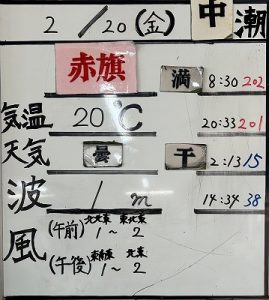 2/20(金) 中潮
赤旗 満 8:30 202
20:33 201
気温 20℃
天気 曇 干 2:13 15
波 1m 14:34 38
風 (午前) 北北東 1～ 東北東 2
(午後) 1～ 北東 2